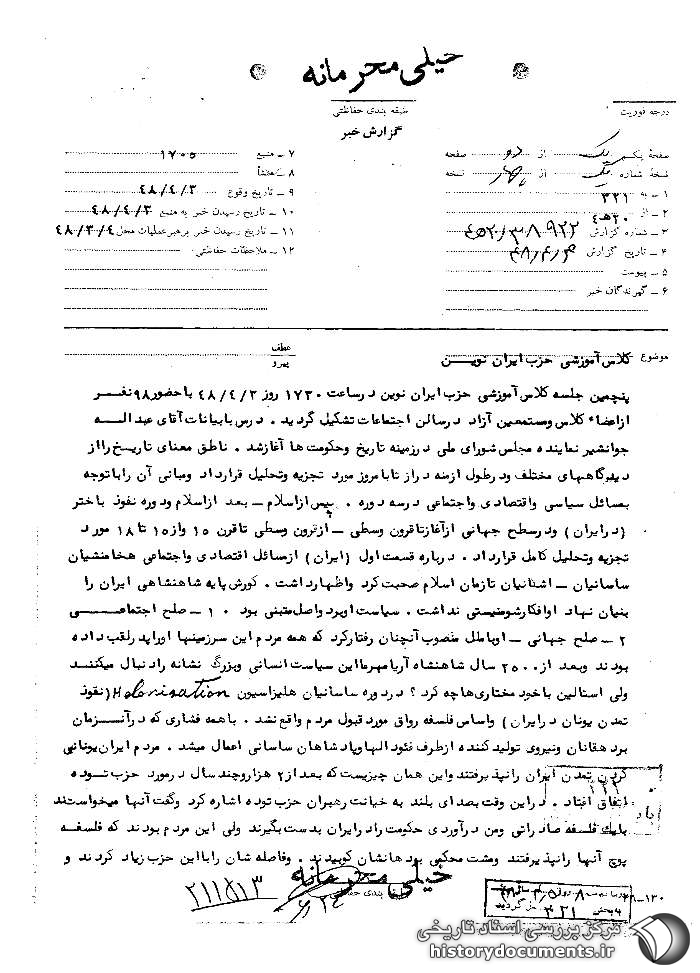 خیلی محرمانه
طبقه بندی حفاظتی
درجه فوریت
گزارش خبر
صفحه یک از دو صفحه
نسخه شماره یک از چهار نسخه
۱ – به ۳۲۱
۲ – از ۲۰ ه‍ ۴
۳ – شماره گزارش
۴ – تاریخ گزارش ۴۸/۴/۴
۵ – پیوست
۶ – گیرندگان خبر
۷ – منبع ۱۷۰۵
۸ – منشأ
۹ – تاریخ وقوع ۴۸/۴/۳
۱۰ – تاریخ رسیدن خبر به منبع ۴۸/۴/۳
۱۱ – تاریخ رسیدن خبر برهبر عملیات محل ۴۸/۳/۴
۱۲ – ملاحظات حفاظتی
موضوع کلاس آموزشی حزب ایران نوین
عطف
پیرو
پنجمین جلسه کلاس آموزشی حزب ایران نوین درساعت ۱۷۳۰ روز ۴۸/۴/۳ باحضور۹۸ نفر
ازاعضاء کلاس ومستمعین آزاد درسالن اجتماعات تشکیل گردید . درس بابیانات آقای عبد الله
جوانشیر نماینده مجلس شورای ملی درزمینه تاریخ وحکومت ها آغازشد . ناطق معنای تاریخ رااز
دیدگاههای مختلف ودرطول ازمنه دراز تابامروز مورد تجزیه وتحلیل قرارداد ومبانی آن راباتوجه
بمسائل سیاسی واقتصادی واجتماعی درسه دوره . پیش ازاسلام – بعد ازاسلام ودوره نفوذ باختر
(درایران) ودرسطح جهانی ازآغازتاقرون وسطی – ازقرون وسطی تاقرن ۱۵ واز۱۵ تا ۱۸ مورد
تجزیه وتحلیل کامل قرارداد . درباره قسمت اول (ایران) ازمسائل اقتصادی واجتماعی هخامنشیان
ساسانیان – اشکانیان تازمان اسلام صحبت کرد واظهارداشت . کورش پایه شاهنشاهی ایران را
بنیان نهاد اوافکارشوونیستی نداشت . سیاست اوبردواصل متبنی بود ۱۰ – صلح اجتماعی
۲ – صلح جهانی – اوباملل مغضوب آنچنان رفتارکرد که همه مردم این سرزمینها اوراپدرلقب داده
بودند وبعد از ۲۵۰۰ سال شاهنشاه آریامهرمااین سیاست انسانی وبزرگ نشانه رادنبال میکنند
ولی استالین باخود مختاری‌هاچه کرد ؟ دردوره ساسانیان هلنیزاسیون Helenisation (نفوذ
تمدن یونان درایران) واساس فلسفه رواق موردقبول مردم واقع نشد . باهمه فشاری که درآنزمان
بردهقانان ونیروی تولیدکننده ازطرف فئودالهاوپادشاهان ساسانی اعمال میشد . مردم ایران‌یونانی
کردن تمدن ایران رانپذیرفتند واین همان چیزیست که بعداز۲ هزاروچند سال درمورد حزب توده
اتفاق افتاد . دراین وقت بصدای بلند به خیانت رهبران حزب توده اشاره کرد وگفت آنها میخواستند
بایک فلسفه صادراتی ومن درآوردی حکومت رادرایران بدست بگیرند ولی این مردم بودند که فلسفه
پوچ آنها رانپذیرفتند ومشت محکمی بردهانشان کوبیدند . وفاصله شان رابااین حزب زیاد کردند و
خیلی محرمانه
طبقه بندی حفاظتی
۲۱۱۵۱۳
۴۸–۱۳۰
مرکز بررسی اسناد تاریخی
historydocuments.ir